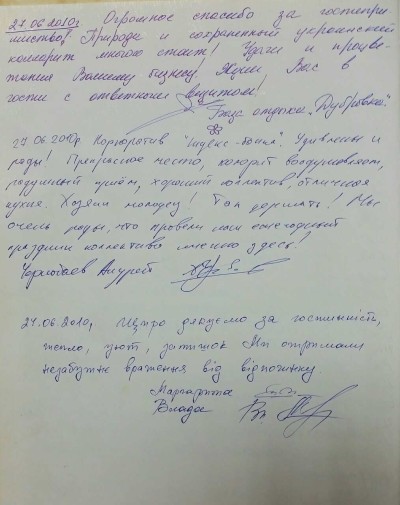 27.06.2010г Огромное спасибо за гостепри
имство! Природа и сохраненный украинский
колорит многого стоит! Удачи и процве-
тания Вашему бизнесу! Ждем Вас в
гости с ответным визитом!
База отдыха „Дубровка"
27.06.2010р Корпоратив "Индекс-банка". Удивлены и
рады! Прекрасное место, колорит воодушевляет,
радушный приём, хороший коллектив, отличная
кухня. Хозяин молодец! Так держать! Мы
очень рады, что провели наш ежегодный
праздник коллектива именно здесь!
Андрей
27.06.2010р Щиро дякуємо за гостинність,
тепло, уют, затишок Ми отримали
незабутнє враження від відпочинку
Маргарита
Влада